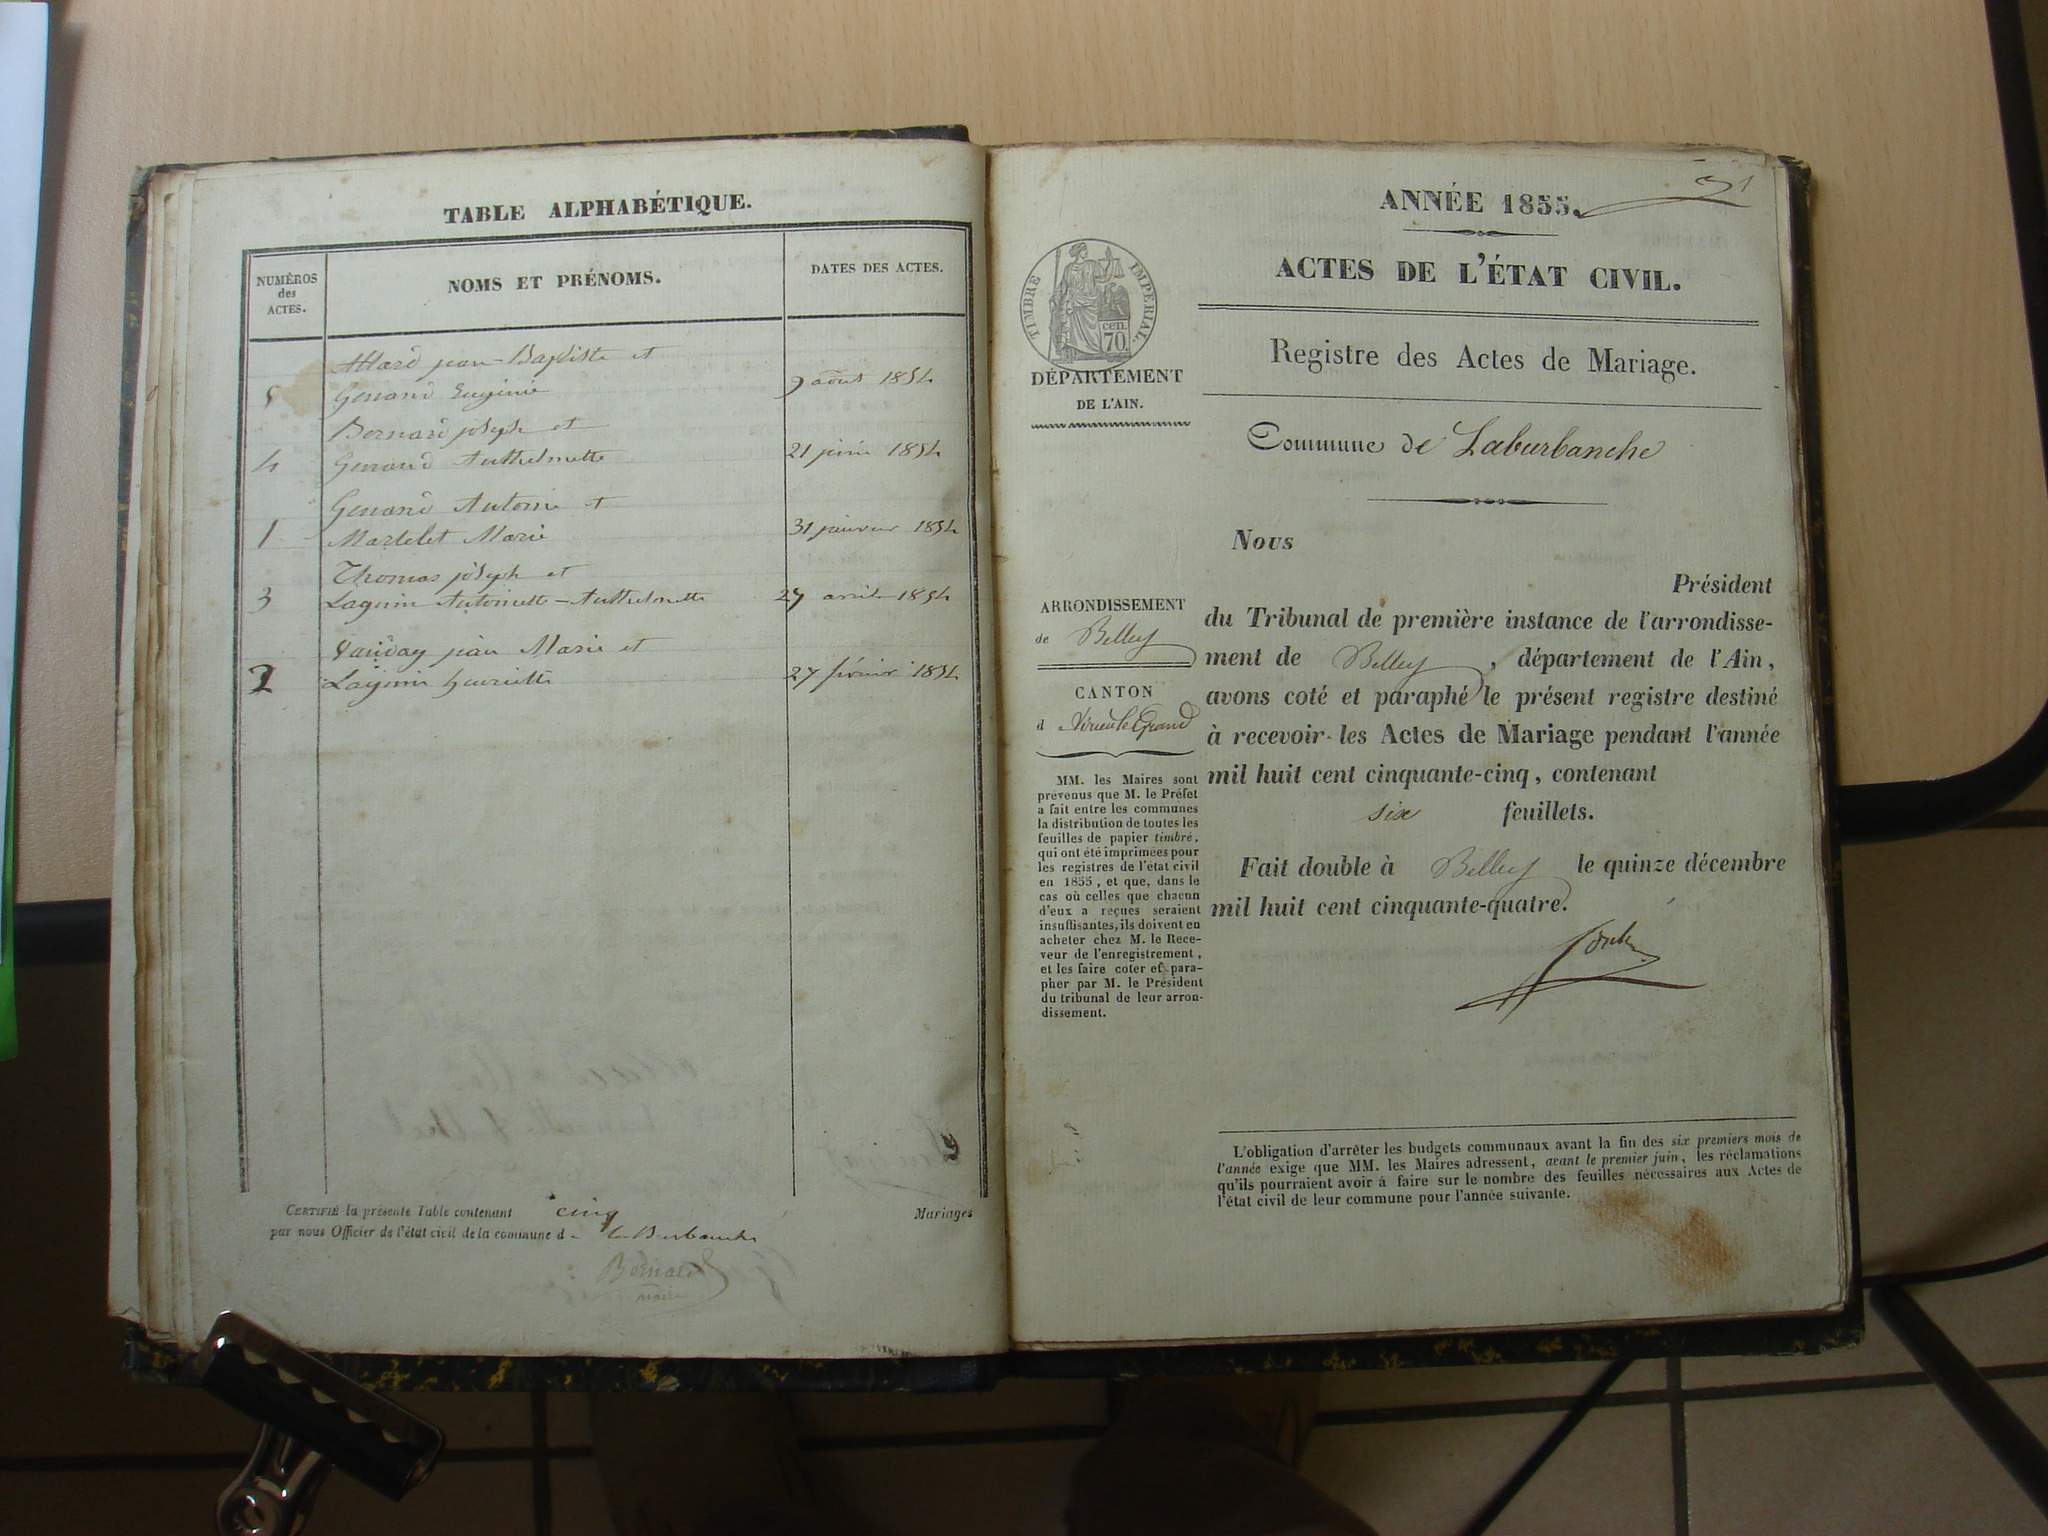 TABLE ALPHABÉTIQUE.
NUMÉROS
des
ACTES.
NOMS ET PRÉNOMS.
DATES DES ACTES.
Allard jean-Baptiste et
5 Genand Eugénie 9 août 1854
Bernard joseph et
4 Genand Anthelmette 21 juin 1854
Genand Antoine et
1 Martelet Marie 31 janvier 1854
Thomas joseph et
3 Antoinette-Anthelmette 27 avril 1854
jean Marie et
2 henriette 27 février 1854
CERTIFIÉ la présente Table contenant cinq Mariages
par nous Officier de l'état civil de la commune d e la Burbanche
Bernard
maire
ANNÉE 1855.
ACTES DE L'ÉTAT CIVIL.
TIMBRE IMPERIAL.
cen.
70
DÉPARTEMENT
DE L'AIN.
Registre des Actes de Mariage.
Commune de Laburbanche
ARRONDISSEMENT
de Belley
CANTON
d Virieu le Grand
MM. les Maires sont
prévenus que M. le Préfet
a fait entre les communes
la distribution de toutes les
feuilles de papier timbré,
qui ont été imprimées pour
les registres de l'état civil
en 1855, et que, dans le
cas où celles que chacun
d'eux a reçues seraient
insuffisantes, ils doivent en
acheter chez M. le Rece-
veur de l'enregistrement,
et les faire coter et para-
pher par M. le Président
du tribunal de leur arron-
dissement.
Nous
Président
du Tribunal de première instance de l'arrondisse-
ment de Belley, département de l'Ain,
avons coté et paraphé le présent registre destiné
à recevoir les Actes de Mariage pendant l'année
mil huit cent cinquante-cinq, contenant
six feuillets.
Fait double à Belley le quinze décembre
mil huit cent cinquante-quatre.
L'obligation d'arrêter les budgets communaux avant la fin des six premiers mois de
l'année exige que MM. les Maires adressent, avant le premier juin, les réclamations
qu'ils pourraient avoir à faire sur le nombre des feuilles nécessaires aux Actes de
l'état civil de leur commune pour l'année suivante.